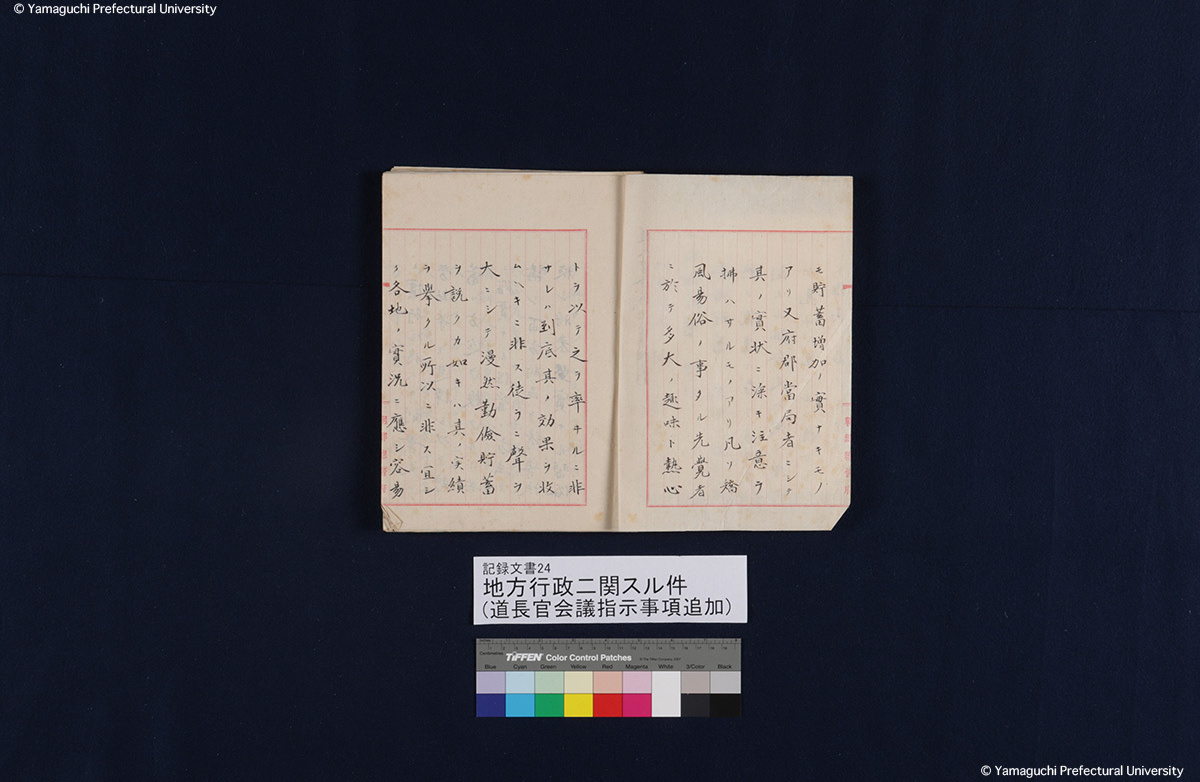 © Yamaguchi Prefectural University
モ貯蓄増加ノ實ナキモノ
アリ又府郡當局者ニシテ
其ノ實状ニ深キ注意ヲ
拂ハサルモノアリ凡ソ矯
風易俗ノ事タル先覺者
ニ於テ多大ノ趣味ト熱心
トヲ以テ之ヲ率ヰルニ非
サレハ到底其ノ効果ヲ收
ムヘキニ非ス徒ラニ聲ヲ
大ニシテ漫然勤儉貯蓄
ヲ説クカ如キハ其ノ実績
ヲ擧クル所以ニ非ス宜シ
ク各地ノ實況ニ應シ容易
記録文書24
地方行政ニ関スル件
(道長官会議指示事項追加)
Centimetres
TIFFEN Color Control Patches
Blue Cyan Green Yellow Red Magenta White 3/Color Black
© Yamaguchi Prefectural University